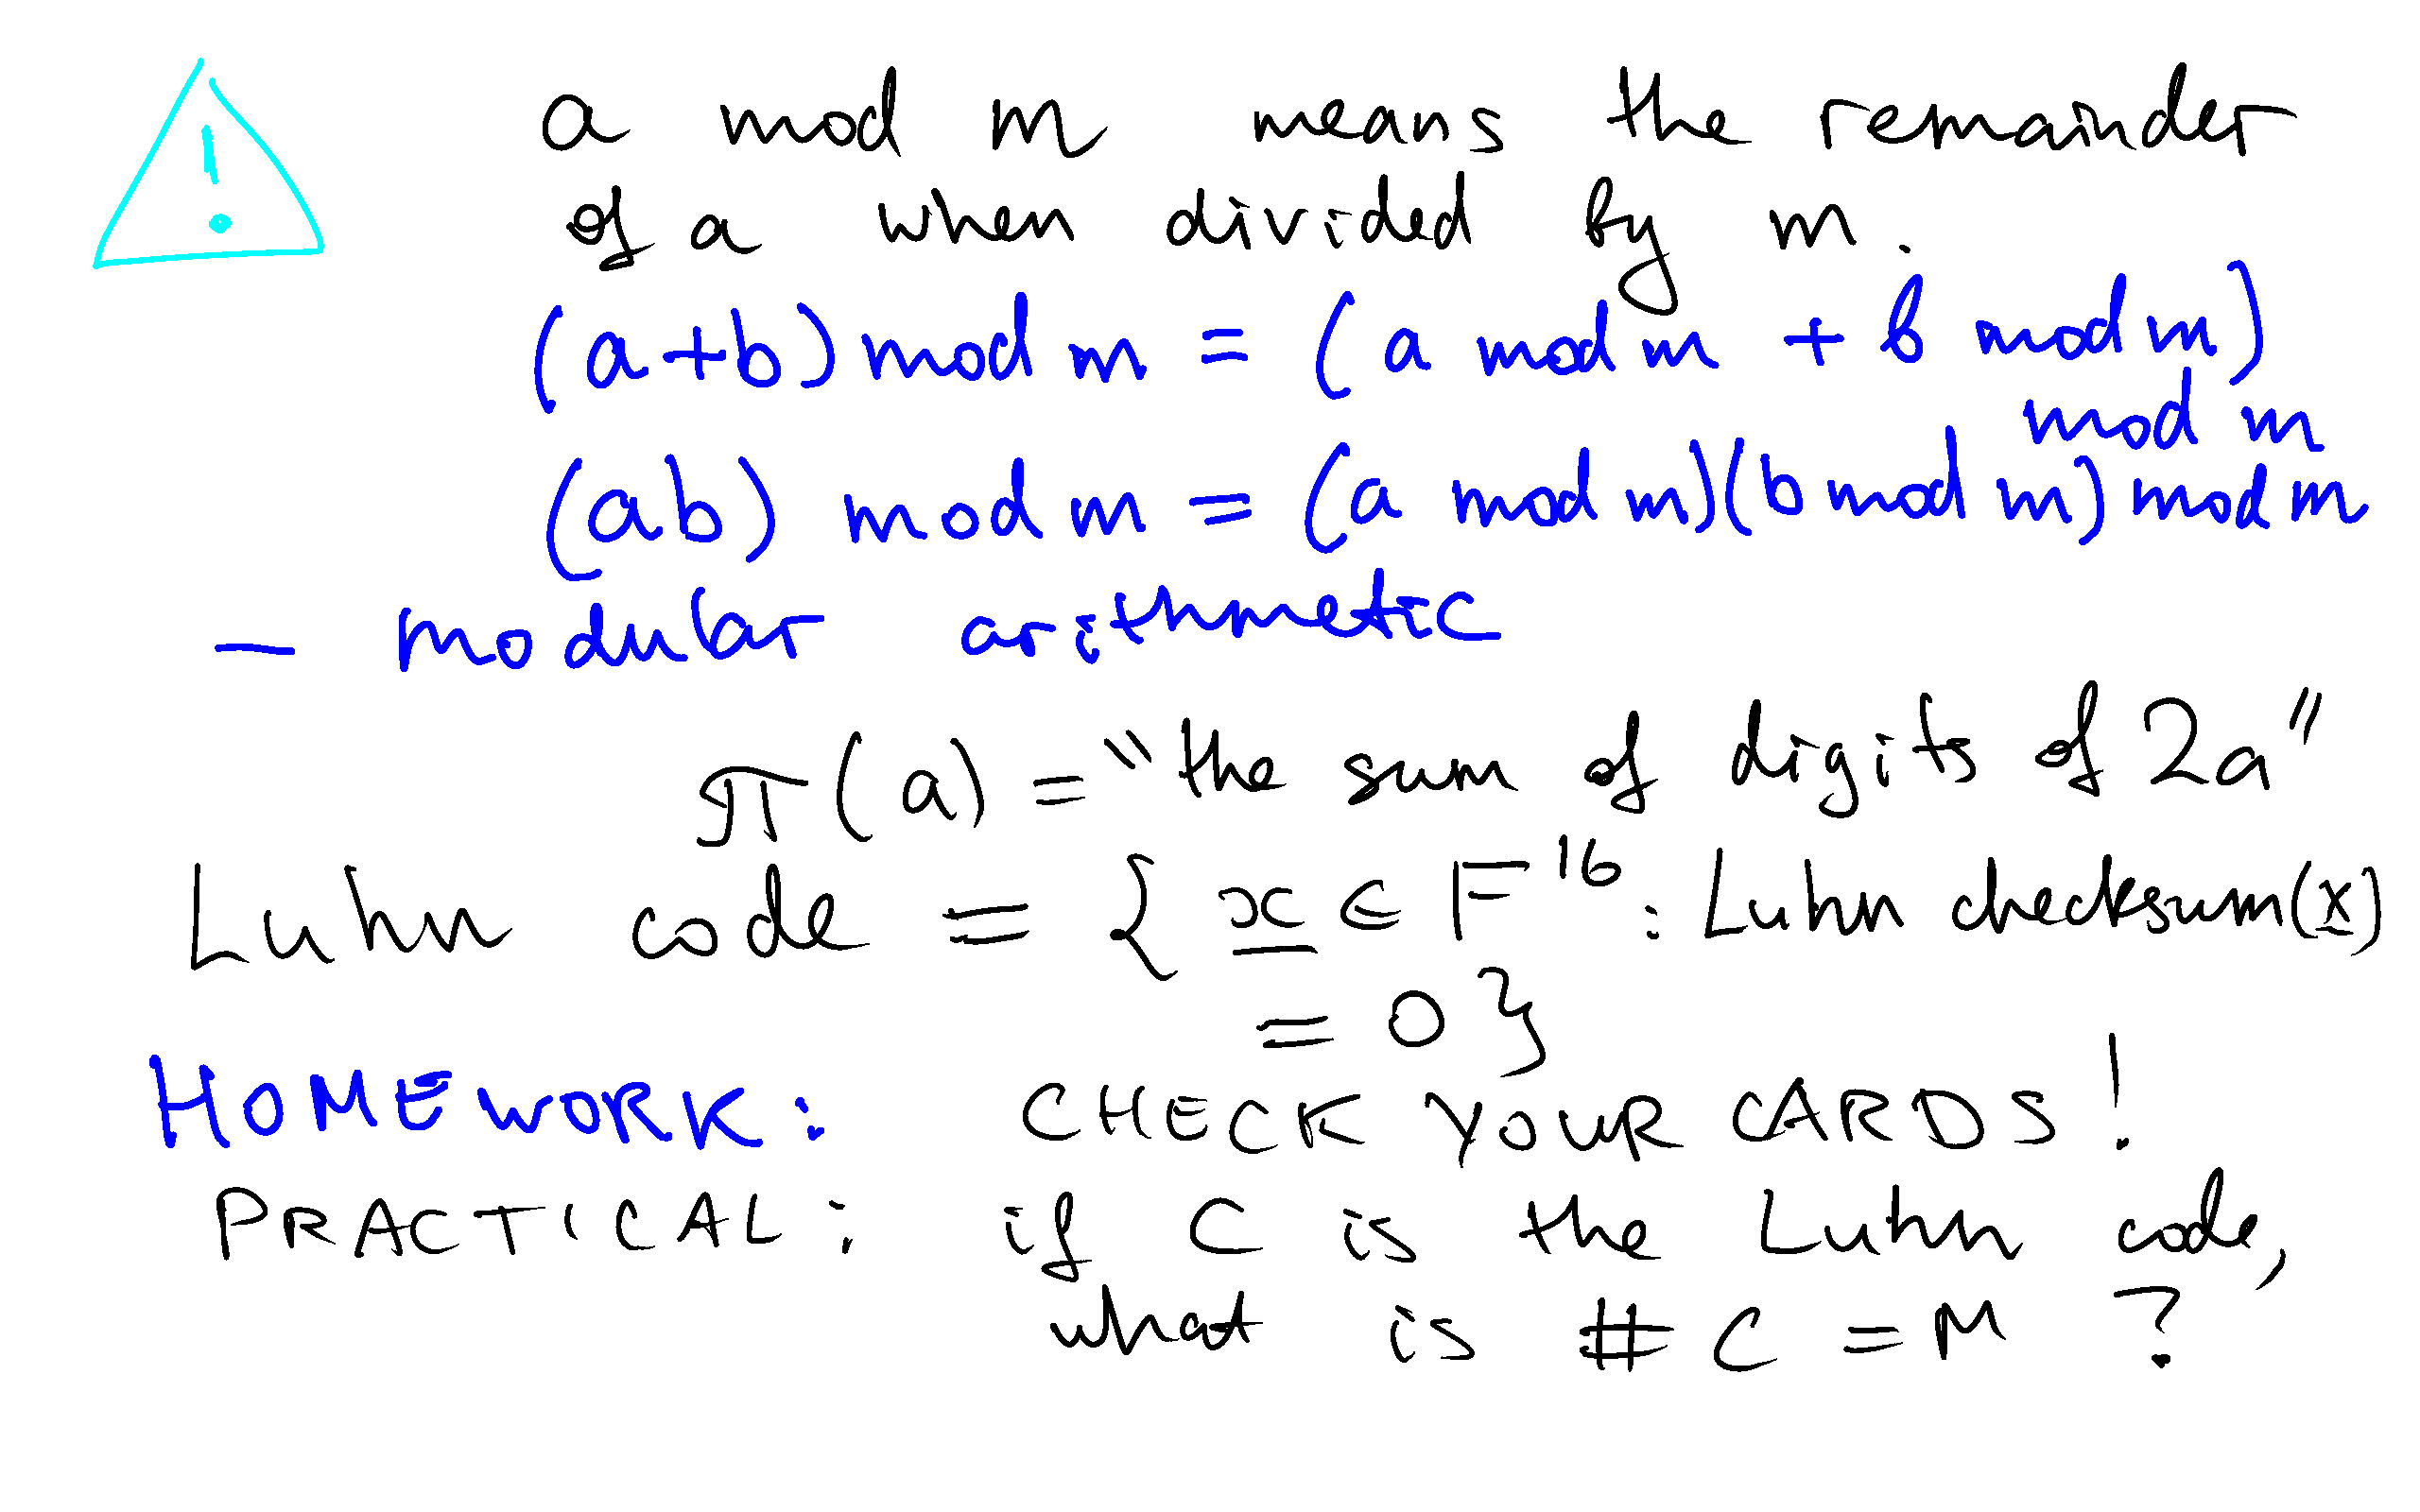 !
a mod m means the remainder
of a when divided by m.
(a+b) mod m = (a mod m + b mod m)
mod m
(ab) mod m = (a mod m)(b mod m) mod m
— modular arithmetic
π(a) = "the sum of digits of 2a"
Luhn code = { x ∈ F^16 : Luhn checksum(x)
= 0 }
HOMEWORK: CHECK YOUR CARDS!
PRACTICAL: if C is the Luhn code,
what is # C = M ?